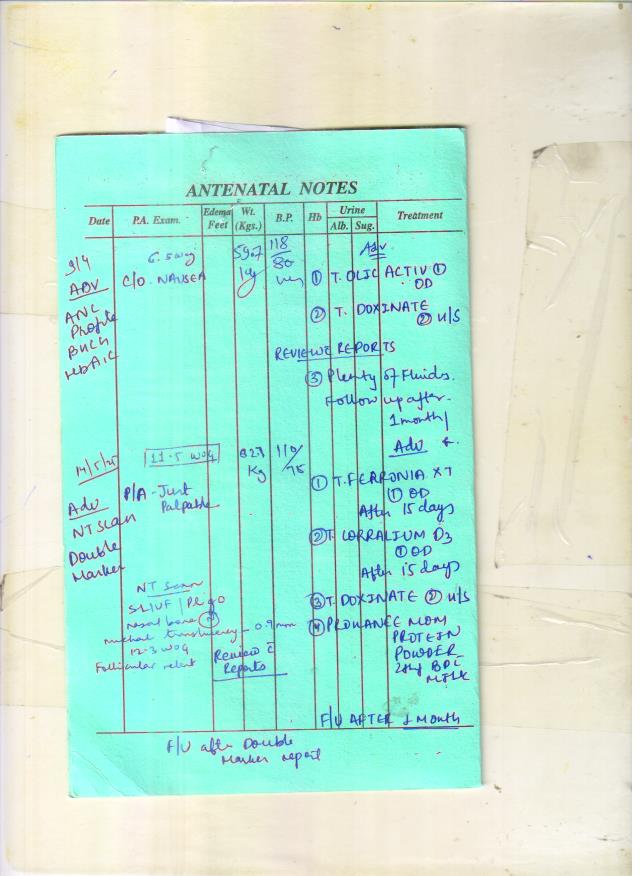 ANTENATAL NOTES
Date P.A. Exam. Edema Feet Wt. (Kgs.) B.P. Hb Urine Alb. Sug. Treatment
9/4 118/80 Adv
ADV C/O. NAUSEA Kg ① T. OLIC ACTIV ① OD
ANC
Profile
② T. DOXINATE ② H/S
HbA1C
REVIEW C REPORTS
③ Plenty of Fluids.
Follow up after
1 month/
Adv
14/5/25 11.5 WOG Kg 110/75
Adv P/A - Just Palpable
① T. FERRONIA XT
① OD
After 15 days
NT scan
Double
Marker
② T. CORRALIUM D3
① OD
After 15 days
NT scan
SLIUF
③ T. DOXINATE ② H/S
nasal bone
nuchal translucency - 0.9 mm
12.3 WOG
Review c Reports
④ PROHANCE MOM
PROTEIN
POWDER
MILK
F/U AFTER 1 Month
F/U after Double
Marker report